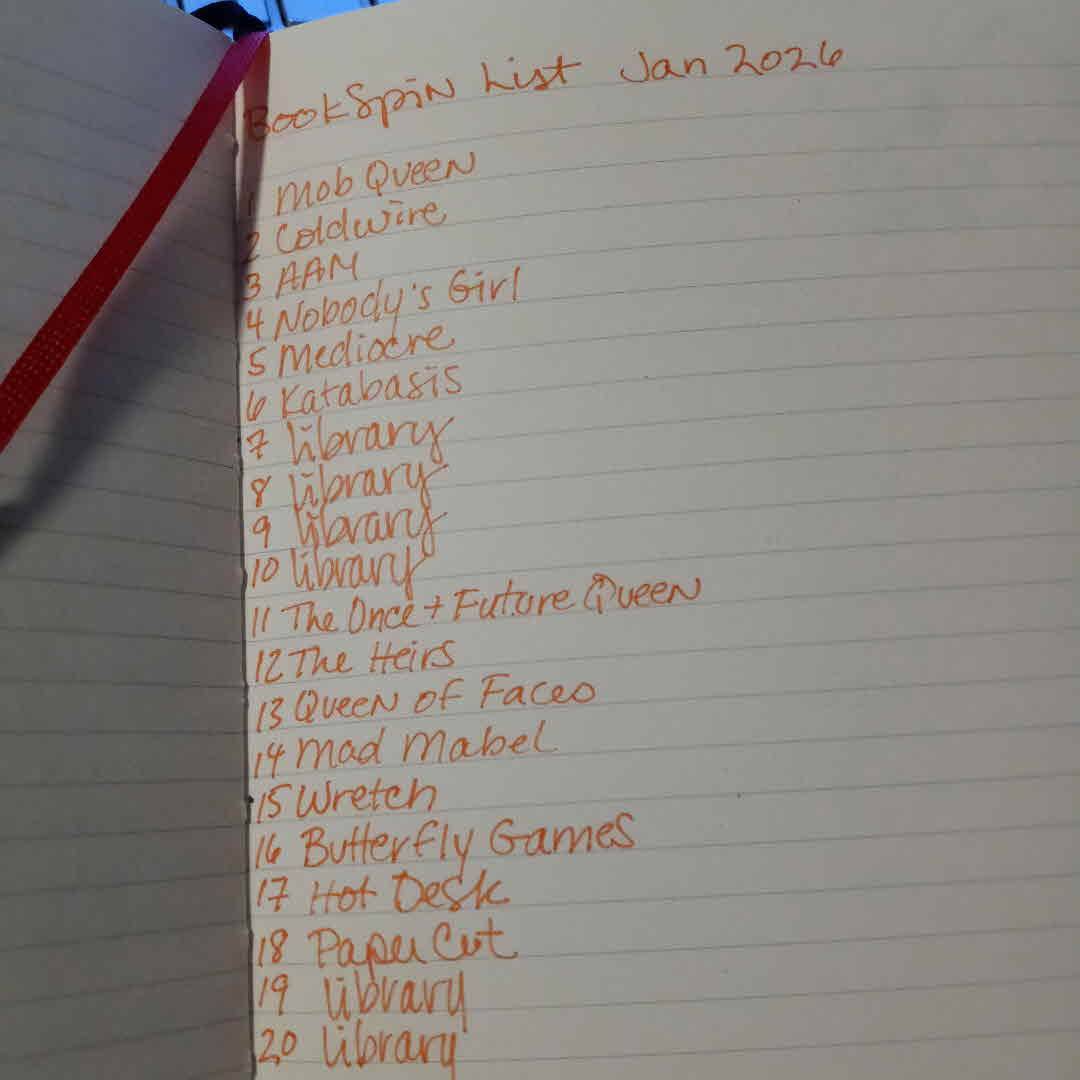 BookSpin List Jan 2026
1 Mob Queen
2 Coldwire
3 AAM
4 Nobody's Girl
5 Mediocre
6 Katabasis
7 library
8 library
9 library
10 library
11 The Once + Future Queen
12 The Heirs
13 Queen of Faces
14 Mad Mabel
15 Wretch
16 Butterfly Games
17 Hot Desk
18 Paper Cut
19 library
20 library